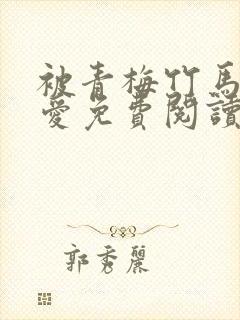 被青梅竹馬
愛免費閱讀
郭秀麗